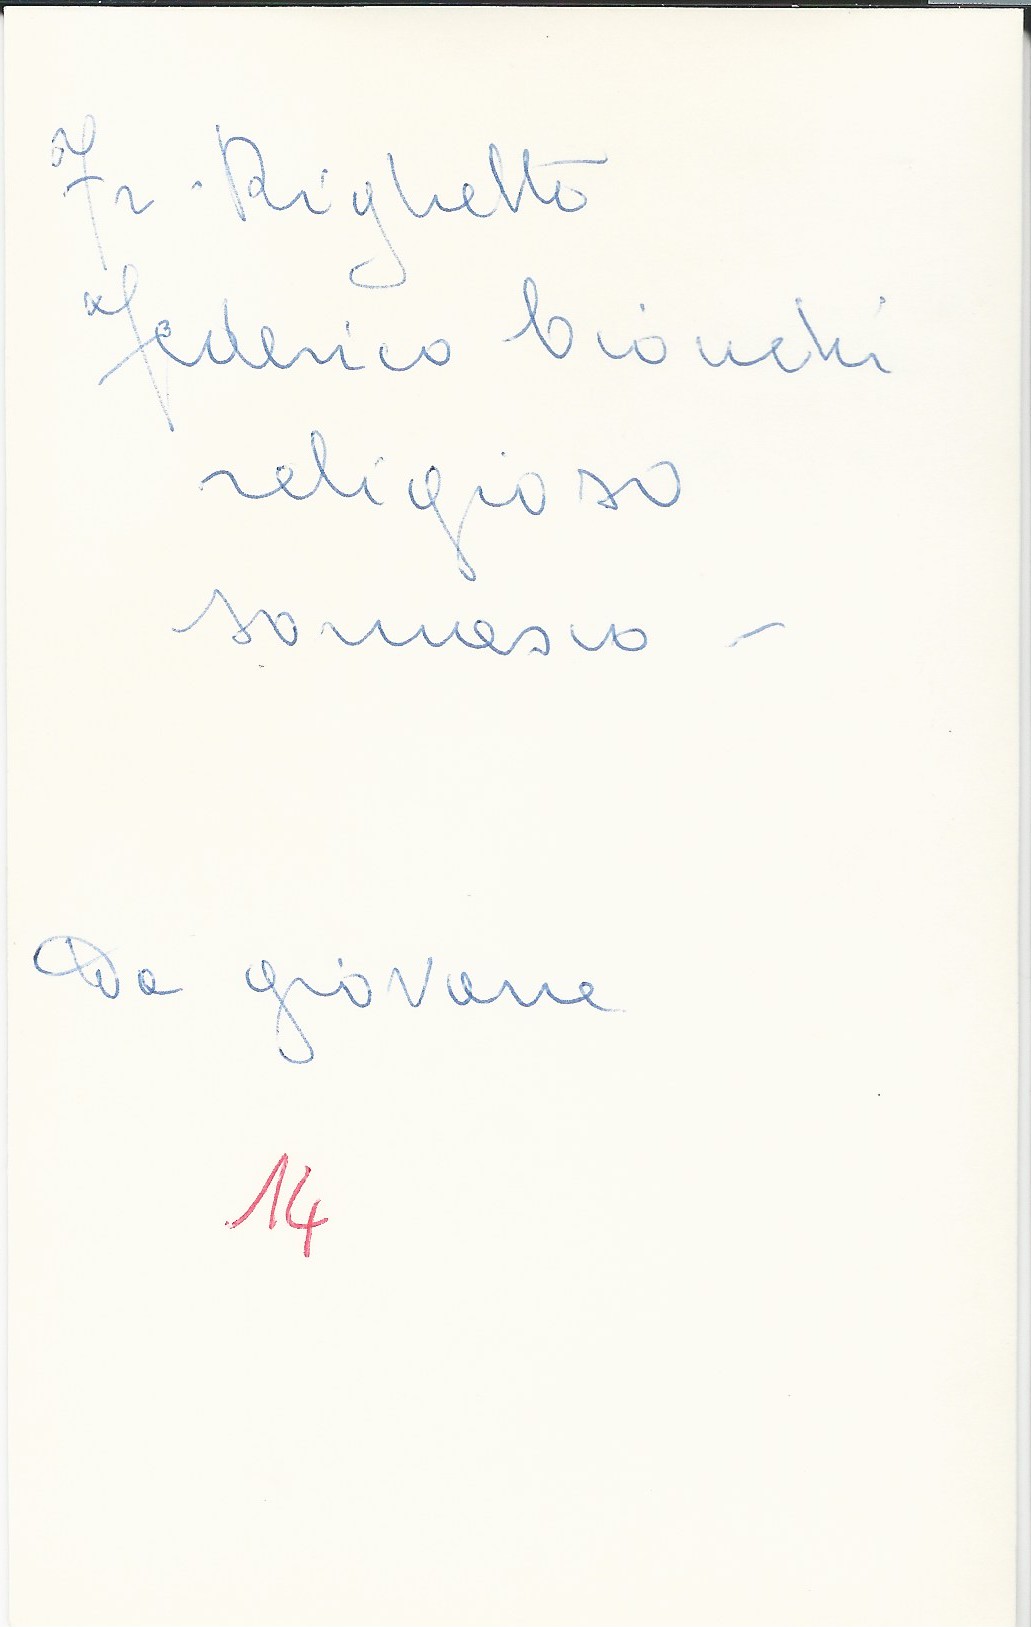 Fr. Righetto
Federico Cionchi
religioso
somasco -
Da giovane
14